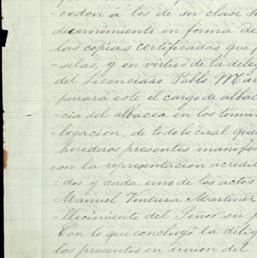 -ceden á los de su clase
discernimiento en forma de
las copias certificadas que
selas, y en virtud de la
del Licenciado Pablo Mar
penará este el cargo de albac
cia del albacea en los términ
logacion, de todo lo cual
herederos presentes
con la representacion
-dos y cada uno de los actos
Manuel Ventura Martinez
-llecimiento del Señor su
Con lo que concluyó la dilig
los presentes en union del